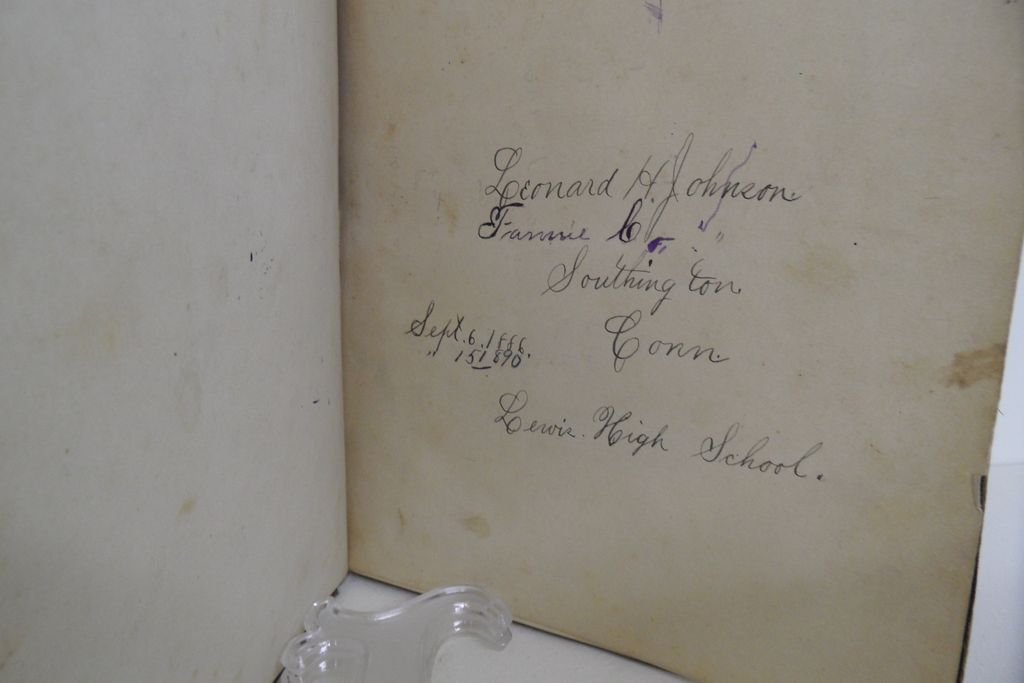 Leonard H. Johnson.
Fannie C. " "
Southington.
Conn.
Sept. 6. 1886.
" 15 1890
Lewis High School.